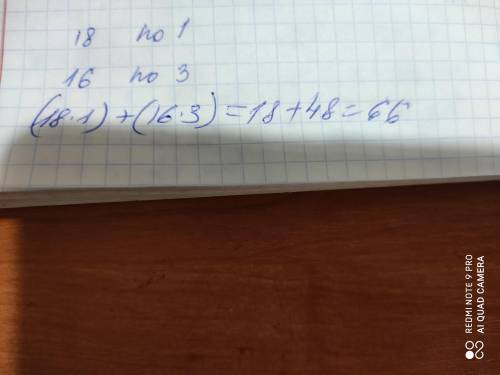 18 по 1
16 по 3
(18·1)+(16·3)=18+48=66
REDMI NOTE 9 PRO
AI QUAD CAMERA